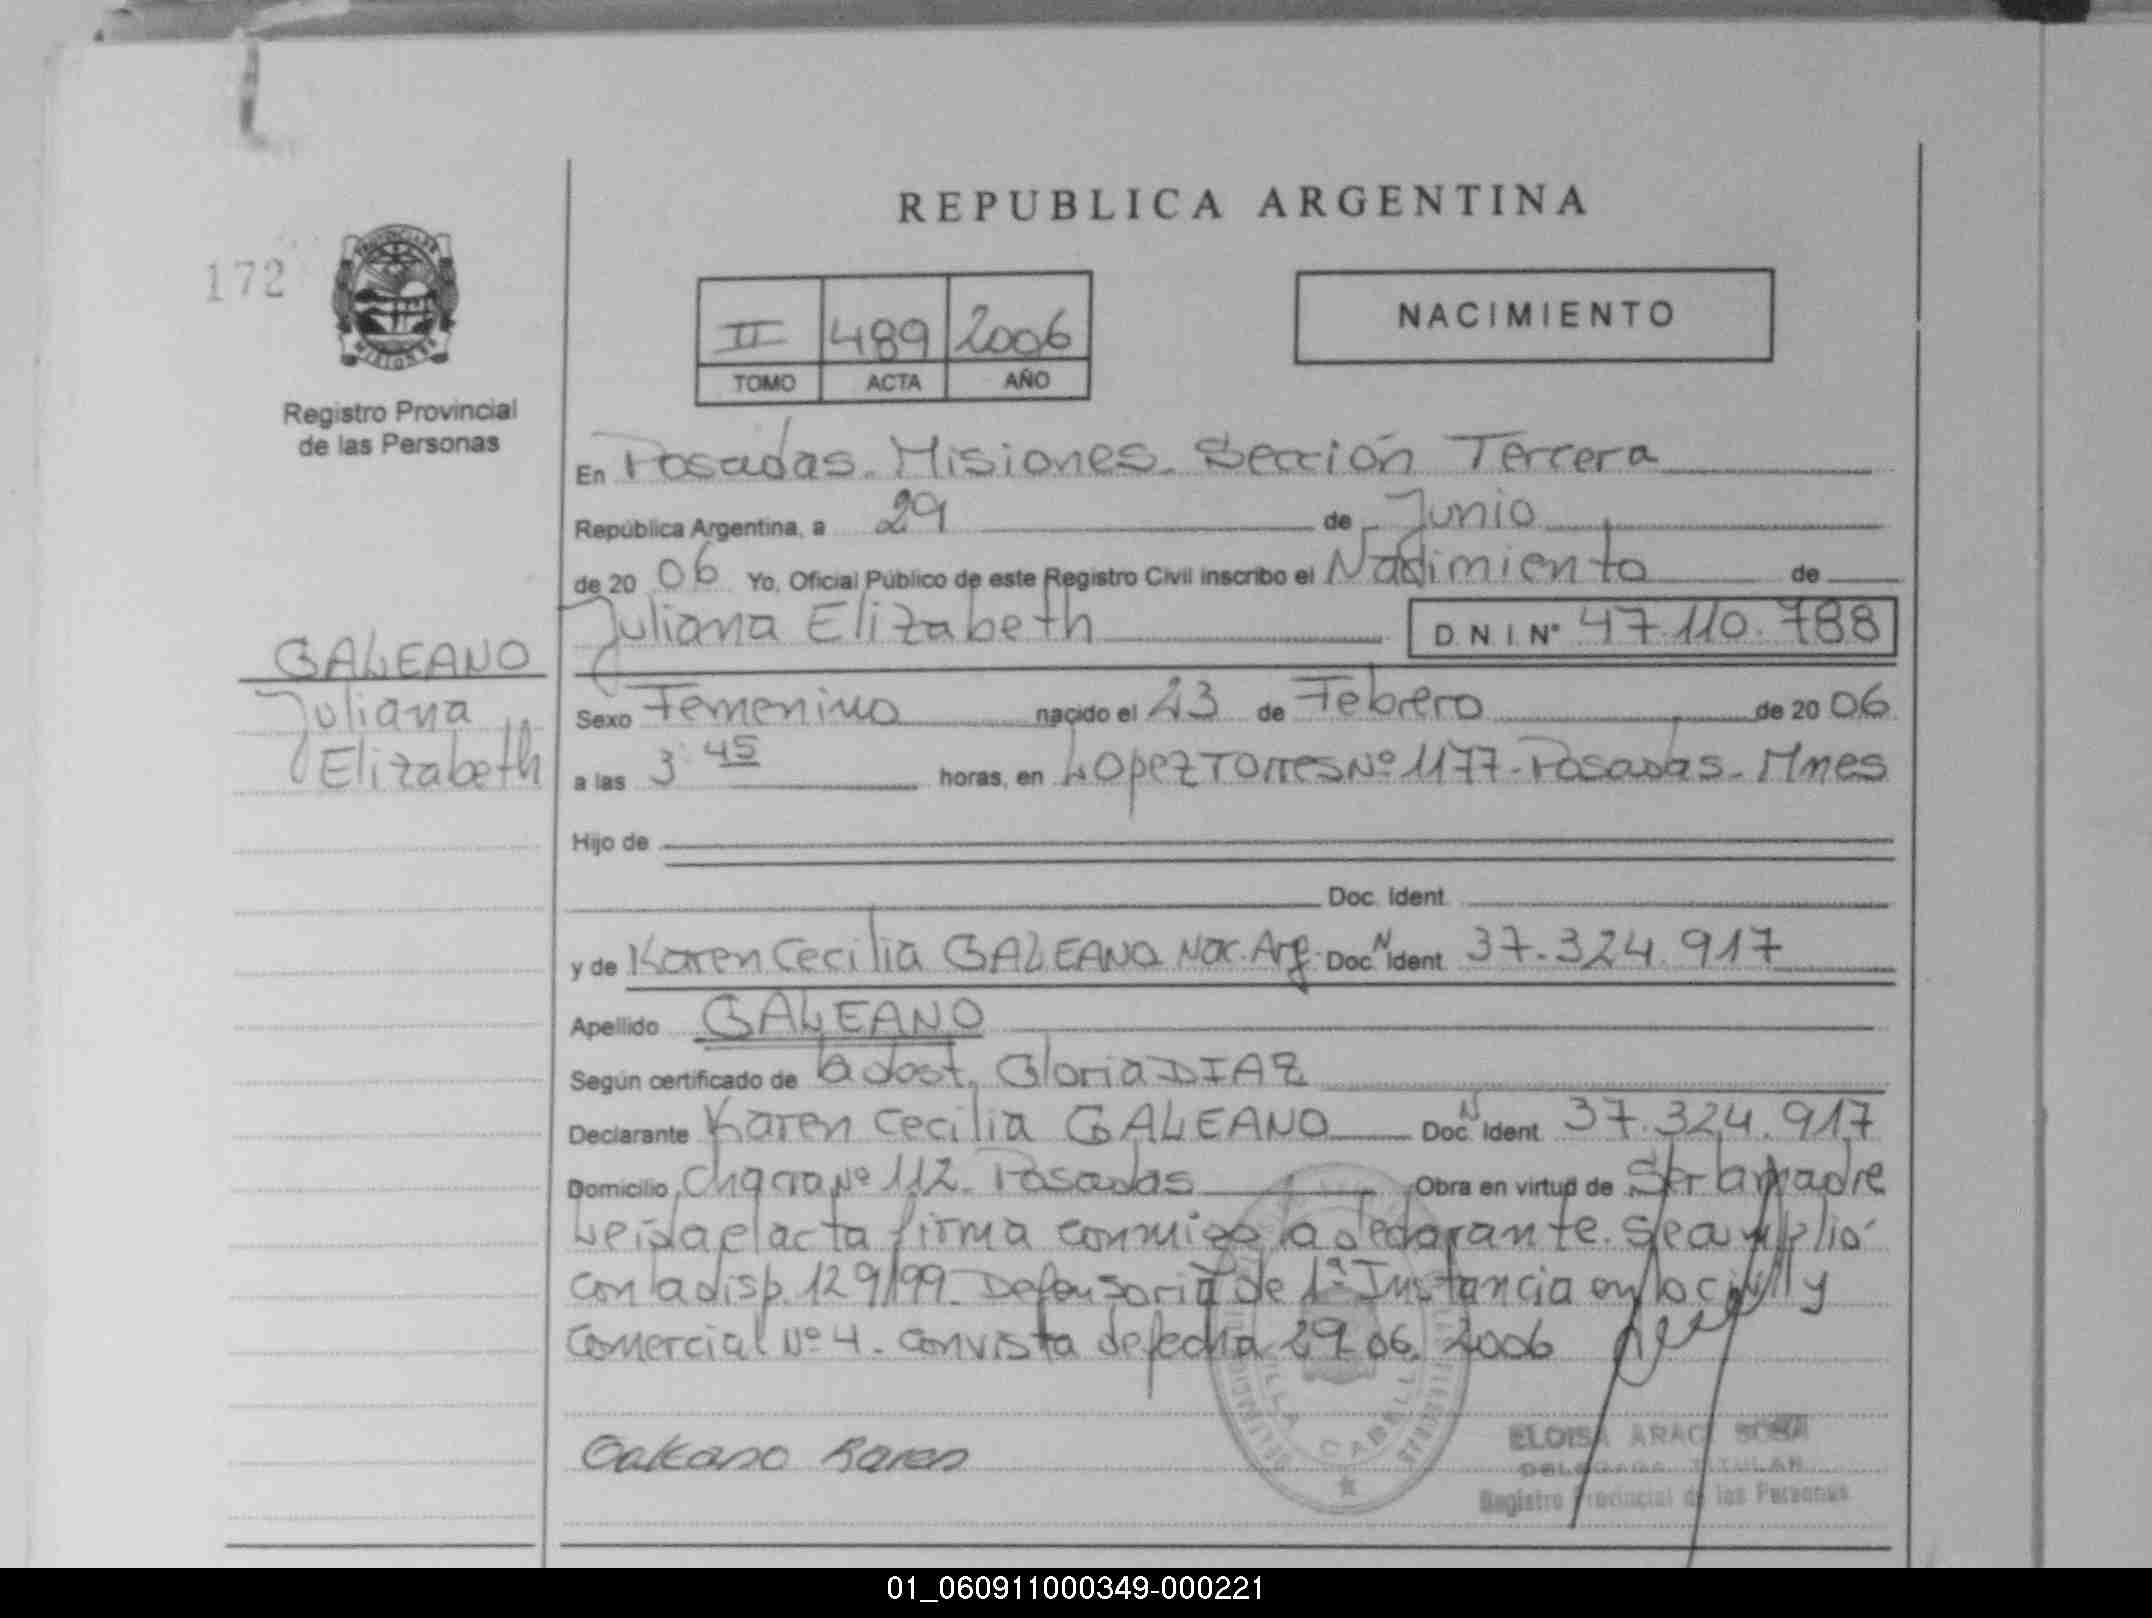 REPUBLICA ARGENTINA
172
PROVINCIA DE
MISIONES
Registro Provincial
de las Personas
II 489 2006
TOMO ACTA AÑO
NACIMIENTO
En Posadas. Misiones. Sección Tercera
República Argentina, a 29 de Junio
de 20 06 Yo, Oficial Público de este Registro Civil inscribo el Nacimiento de
Juliana Elizabeth D.N.I. Nº 47.110.788
GALEANO
Juliana
Elizabeth
Sexo Femenino nacido el 23 de Febrero de 20 06
a las 3 45 horas, en Lopez Torres Nº 1177 - Posadas - Mnes
Hijo de
Doc. Ident.
y de Karen Cecilia GALEANO Nac. Arg. Doc. N Ident. 37.324.917
Apellido GALEANO
Según certificado de la obst. Gloria DIAZ
Declarante Karen Cecilia GALEANO Doc. N Ident. 37.324.917
Domicilio Chacra Nº 112. Posadas Obra en virtud de Ser la madre
Leída el acta firma conmigo la declarante. Se amplió
con la disp. 129/99. Defensoria de 1ª Instancia en lo civil y
Comercial Nº 4. con vista de fecha 29.06.2006
Galeano Karen
VILLA CABELLO
ELOISA ARACI SOSA
DELEGADA TITULAR
Registro Provincial de las Personas
01_060911000349-000221